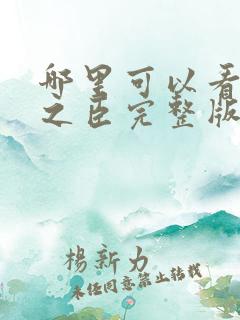 哪里可以看
之臣完整版
楊新力
未经同意禁止转载